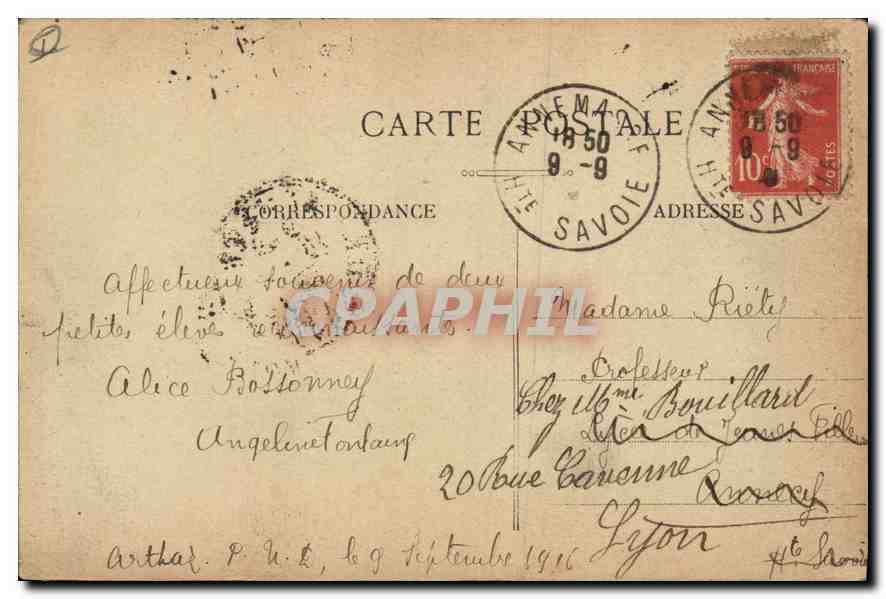 CARTE POSTALE
ANNEMASSE
18 50
9 -9
Hte SAVOIE
ANNEMASSE
18 50
9 -9
Hte SAVOIE
FRANÇAISE
10c
POSTES
CORRESPONDANCE
ADRESSE
CPAPHIL
Affectueux souvenir de deux
petites élèves reconnaissantes.
Alice Bossonney
Angeline Fontaine
Arthaz. P. N. D, le 9 Septembre 1916
Madame Riéty
Professeur
Chez Mme Bouillard
Lycée de Jeunes Filles
20 Rue Cavenne
Annecy
Lyon
Hte Savoie